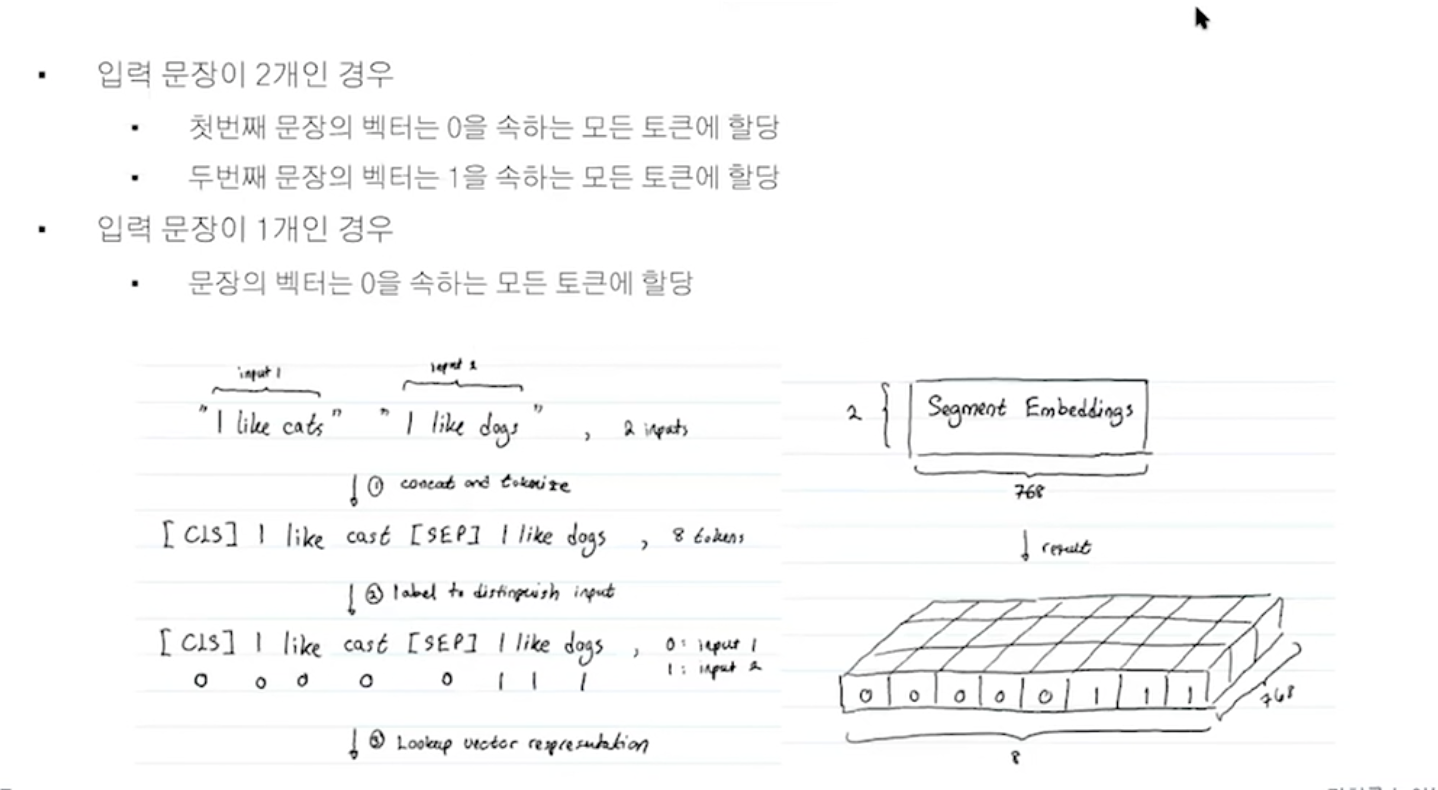 입력 문장이 2개인 경우
첫번째 문장의 벡터는 0을 속하는 모든 토큰에 할당
두번째 문장의 벡터는 1을 속하는 모든 토큰에 할당
입력 문장이 1개인 경우
문장의 벡터는 0을 속하는 모든 토큰에 할당
input 1 input 2
"I like cats" "I like dogs", 2 inputs
① concat and tokenize
[CLS] I like cast [SEP] I like dogs, 8 tokens
② label to distinguish input
[CLS] I like cast [SEP] I like dogs, 0: input 1
1: input 2
0 0 0 0 0 1 1 1
③ Lookup vector respresentation
2 Segment Embeddings
768
result
0 0 0 0 0 1 1 1
768
8